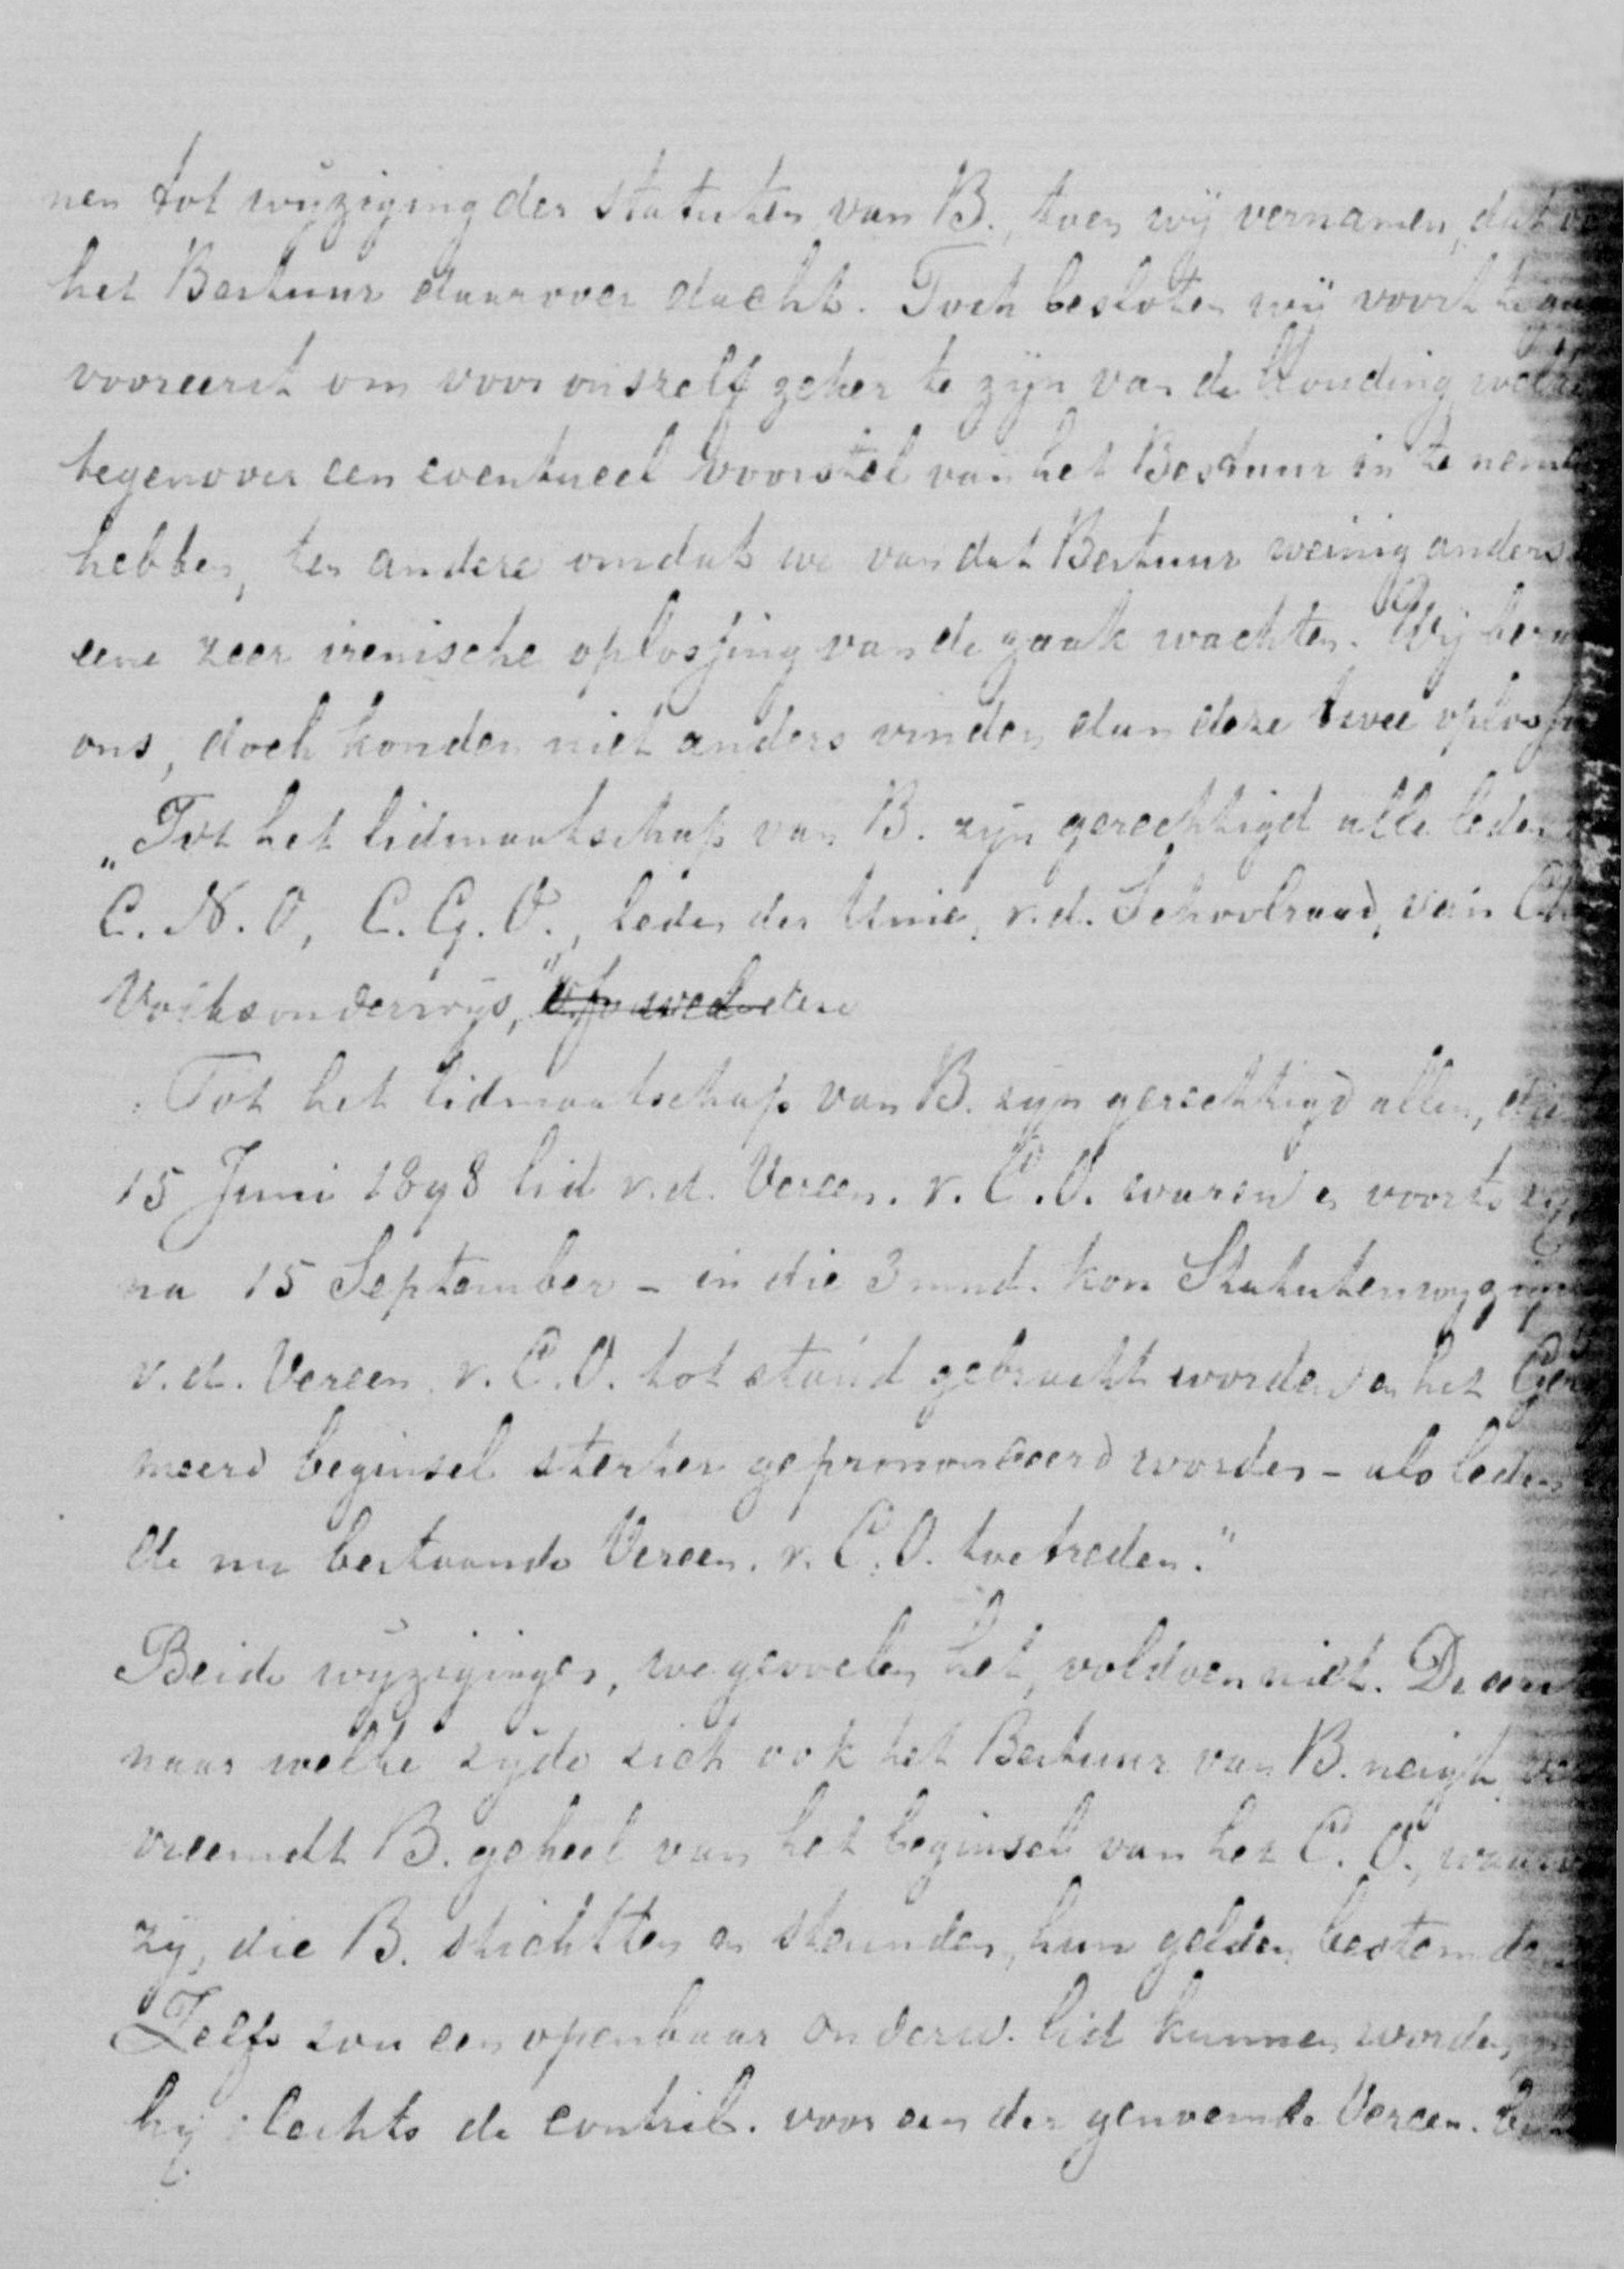 nen tot wijziging der statuten van B., toen wij vernamen, dat
het Bestuur daarover dacht. Toch besloten wij voort te
vooreerst om voor onszelf zeker te zijn van de houding welke
tegenover een eventueel voorstel van het Bestuur in te nemen
hebben, ten andere omdat we van dat Bestuur weinig anders
eene zeer irenische oplossing van de zaak wachten. Wij
ons, doch konden niet anders vinden dan deze twee
„Tot het lidmaatschap van B. zijn gerechtigd alle leden
C. N. O, C. G. O., leden der Unie, v.d. Schoolraad, van
Volksonderwijs,"
Tot het lidmaatschap van B. zijn gerechtigd allen, die
15 Juni 1898 lid v.d. Vereen. v. C. O. waren en voorts zij
na 15 September – in die 3 mnd. kon Statutenwijziging
v.d. Vereen. v. C. O. tot stand gebracht worden en het
meerd beginsel sterker geprononceerd worden – als leden
de nu bestaande Vereen. v. C. O. toetreden."
Beide wijzigingen, we gevoelen het, voldoen niet. De
naar welke zijde zich ook het Bestuur van B. neigt,
vreemdt B. geheel van het beginsel van het C. O.,
zij, die B. stichtten en steunden, hun gelden bestemden
Zelfs zou een openbaar onderw. lid kunnen worden,
hij slechts de contrib. voor een der genoemde Vereen.